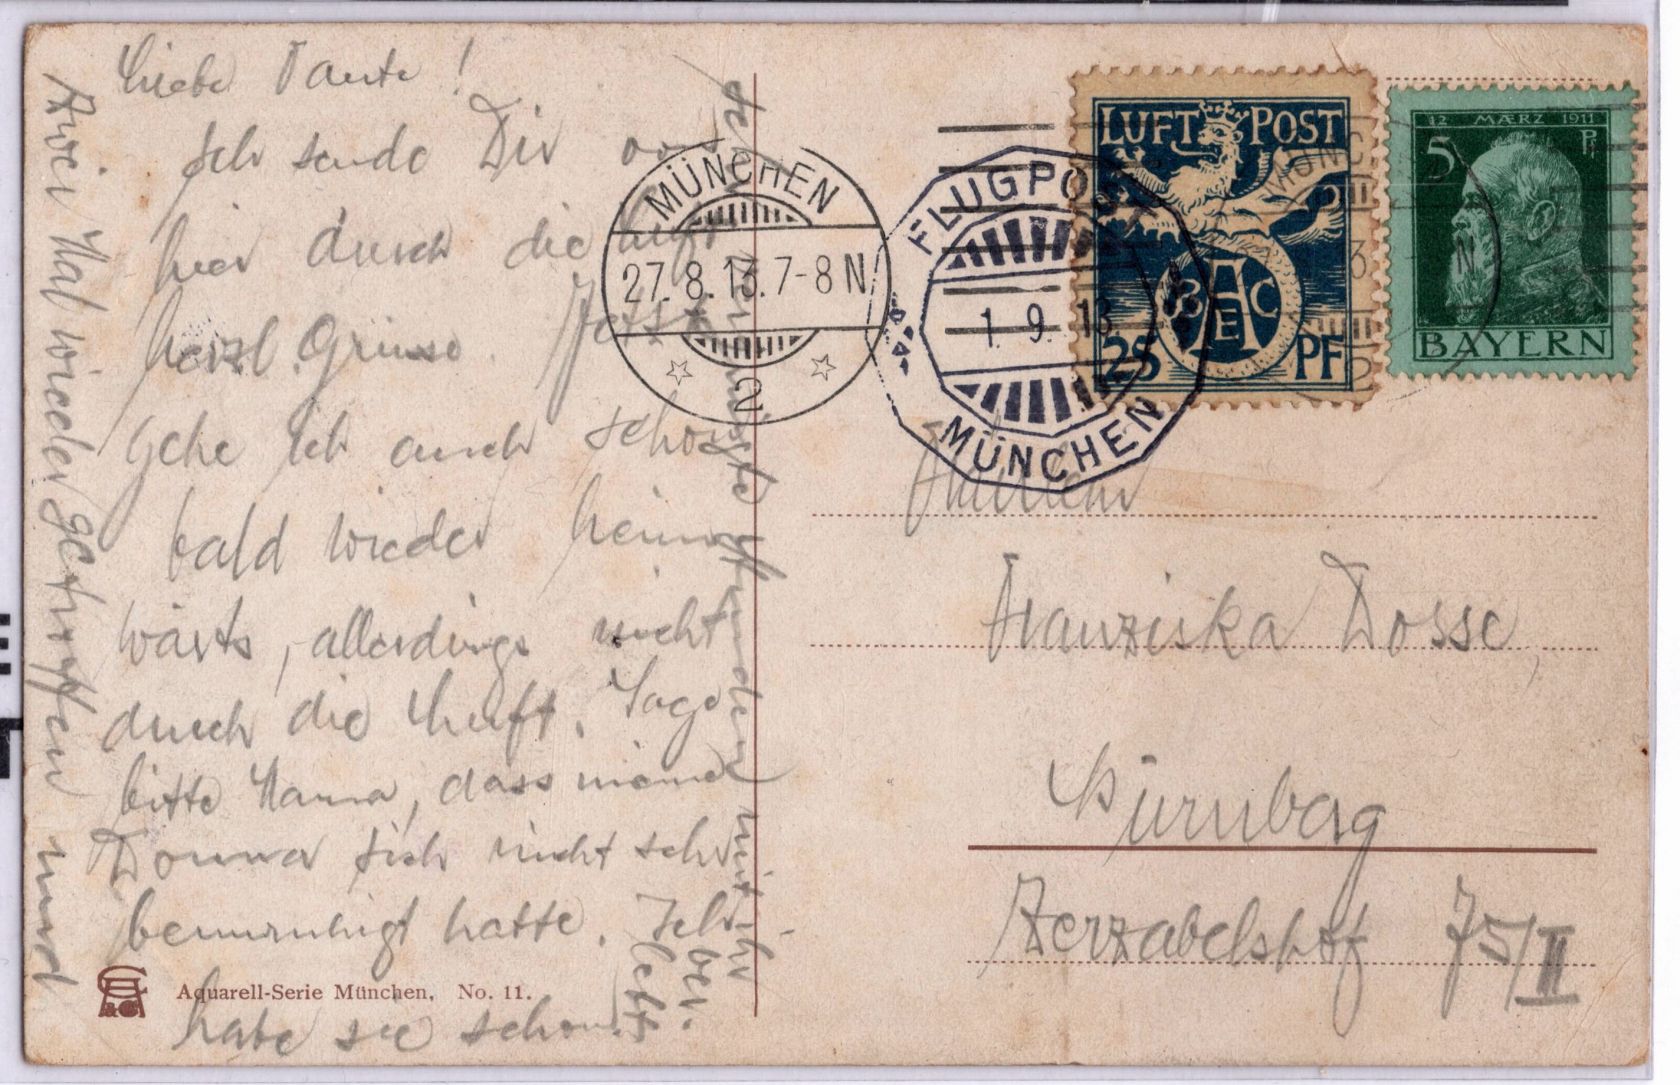 Liebe Tante!
Ich sende Dir von
hier durch die Luft
herzl. Grüsse. Jetzt
gehe ich auch schon
bald wieder heim-
wärts, allerdings nicht
durch die Luft. Sage
bitte Mama, dass meine
Donna sich nicht sehr
beunruhigt hatte. Ich
habe sie schon
Zwei Mal wieder getroffen und
Stunden mit ihr
ver-
lebt.
Aquarell-Serie München, No. 11.
MÜNCHEN
27.8.13.7-8N
2
FLUGPOST
1. 9. 13.
MÜNCHEN
LUFT POST
BAEC
25 PF
12 MÆRZ 1911
5 Pf
BAYERN
Fräulein
Franziska Dosse,
Nürnberg
Zerzabelshof 75/II